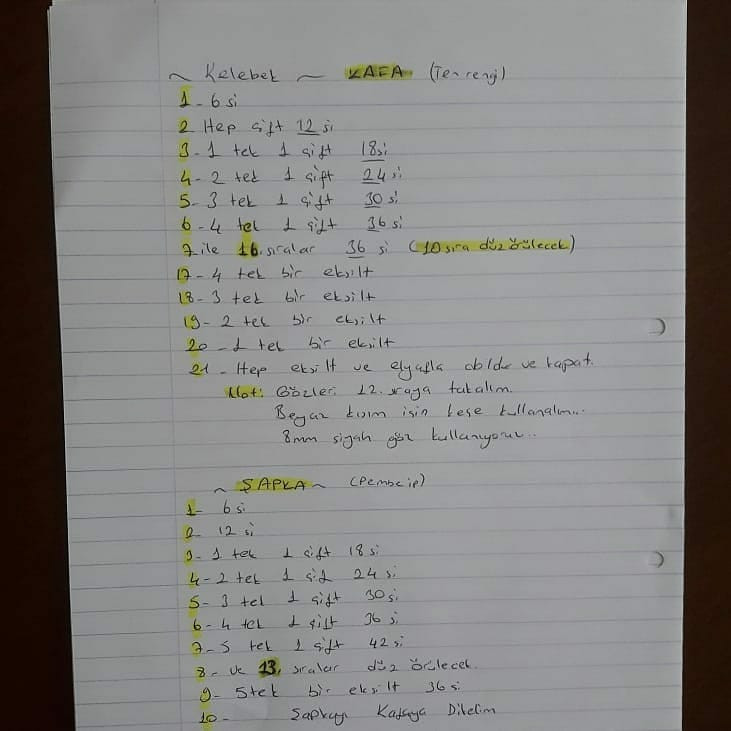 ~ Kelebek ~ KAFA (Ten rengi)
1- 6 si
2 Hep çift 12 si
3- 1 tek 1 çift 18si
4- 2 tek 1 çift 24 si
5- 3 tek 1 çift 30 si
6- 4 tek 1 çift 36 si
7 ile 16. sıralar 36 si (10 sıra düz örülecek)
17- 4 tek bir eksilt
18- 3 tek bir eksilt
19- 2 tek bir eksilt
20- 1 tek bir eksilt
21- Hep eksilt ve elyafla ve kapat.
Not: Gözleri 12. sıraya takalım.
Beyaz kısım için keçe kullanalım...
8mm siyah göz kullanıyoruz..
~ ŞAPKA ~ (Pembe ip)
1- 6 si
2 12 si
3- 1 tek 1 çift 18 si
4- 2 tek 1 çift 24 si
5- 3 tek 1 çift 30 si
6- 4 tek 1 çift 36 si
7- 5 tek 1 çift 42 si
8- ve 13. sıralar düz örülecek.
9- 5tek bir eksilt 36 si
10- Şapkayı Kafaya Dikelim